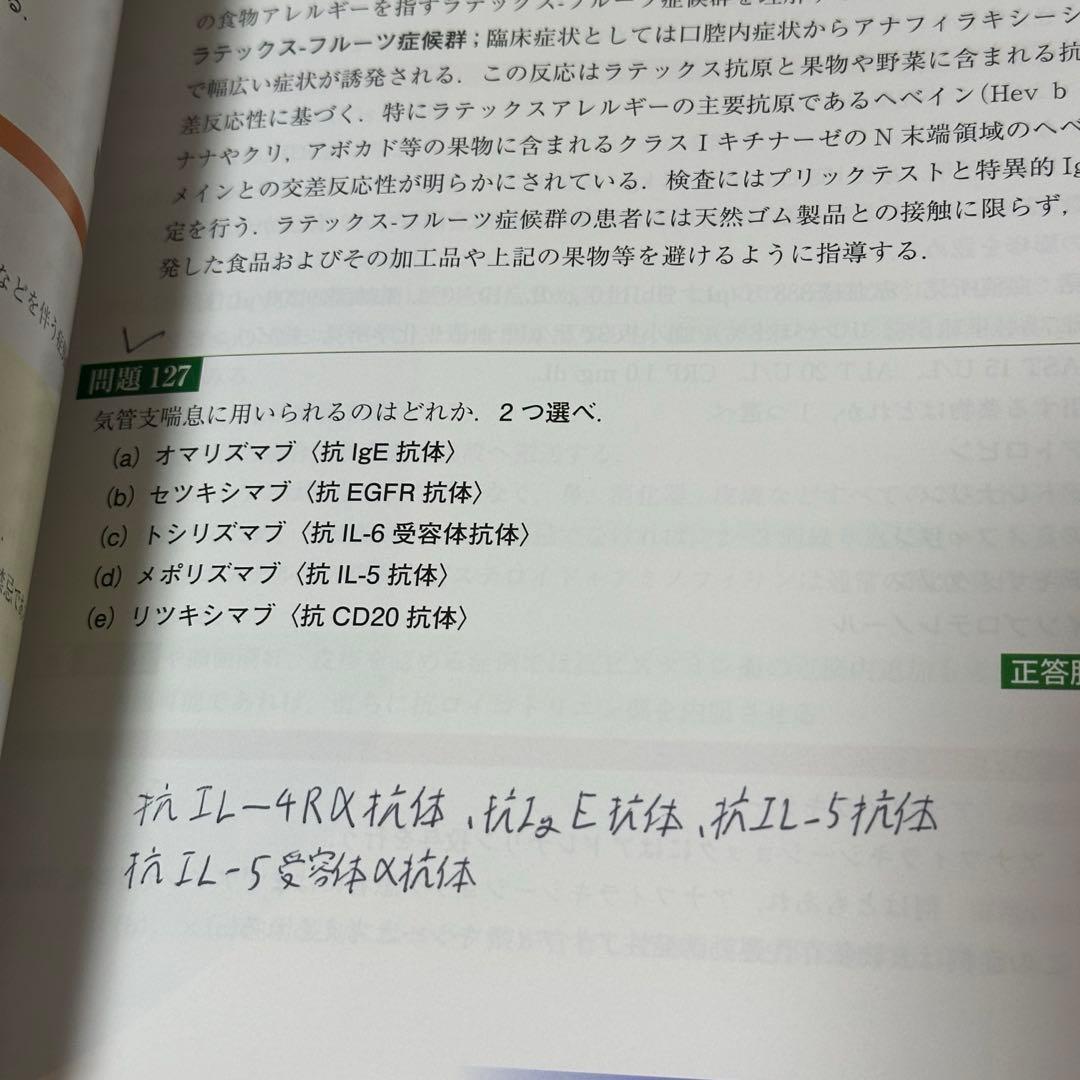 る.
の食物アレルギーを指すラテックス-フルーツ症候群を理解す
ラテックス-フルーツ症候群；臨床症状としては口腔内症状からアナフィラキシーシ
で幅広い症状が誘発される．この反応はラテックス抗原と果物や野菜に含まれる抗
差反応性に基づく．特にラテックスアレルギーの主要抗原であるヘベイン(Hev b
ナナやクリ，アボカド等の果物に含まれるクラス I キチナーゼの N 末端領域のヘベ
メインとの交差反応性が明らかにされている．検査にはプリックテストと特異的 Ig
定を行う．ラテックス-フルーツ症候群の患者には天然ゴム製品との接触に限らず，
発した食品およびその加工品や上記の果物等を避けるように指導する．
などを伴う
問題 127
気管支喘息に用いられるのはどれか．2 つ選べ．
(a) オマリズマブ〈抗 IgE 抗体〉
(b) セツキシマブ〈抗 EGFR 抗体〉
(c) トシリズマブ〈抗 IL-6 受容体抗体〉
(d) メポリズマブ〈抗 IL-5 抗体〉
(e) リツキシマブ〈抗 CD20 抗体〉
正答肢
抗IL-4Rα抗体、抗IgE抗体、抗IL-5抗体
抗IL-5受容体α抗体